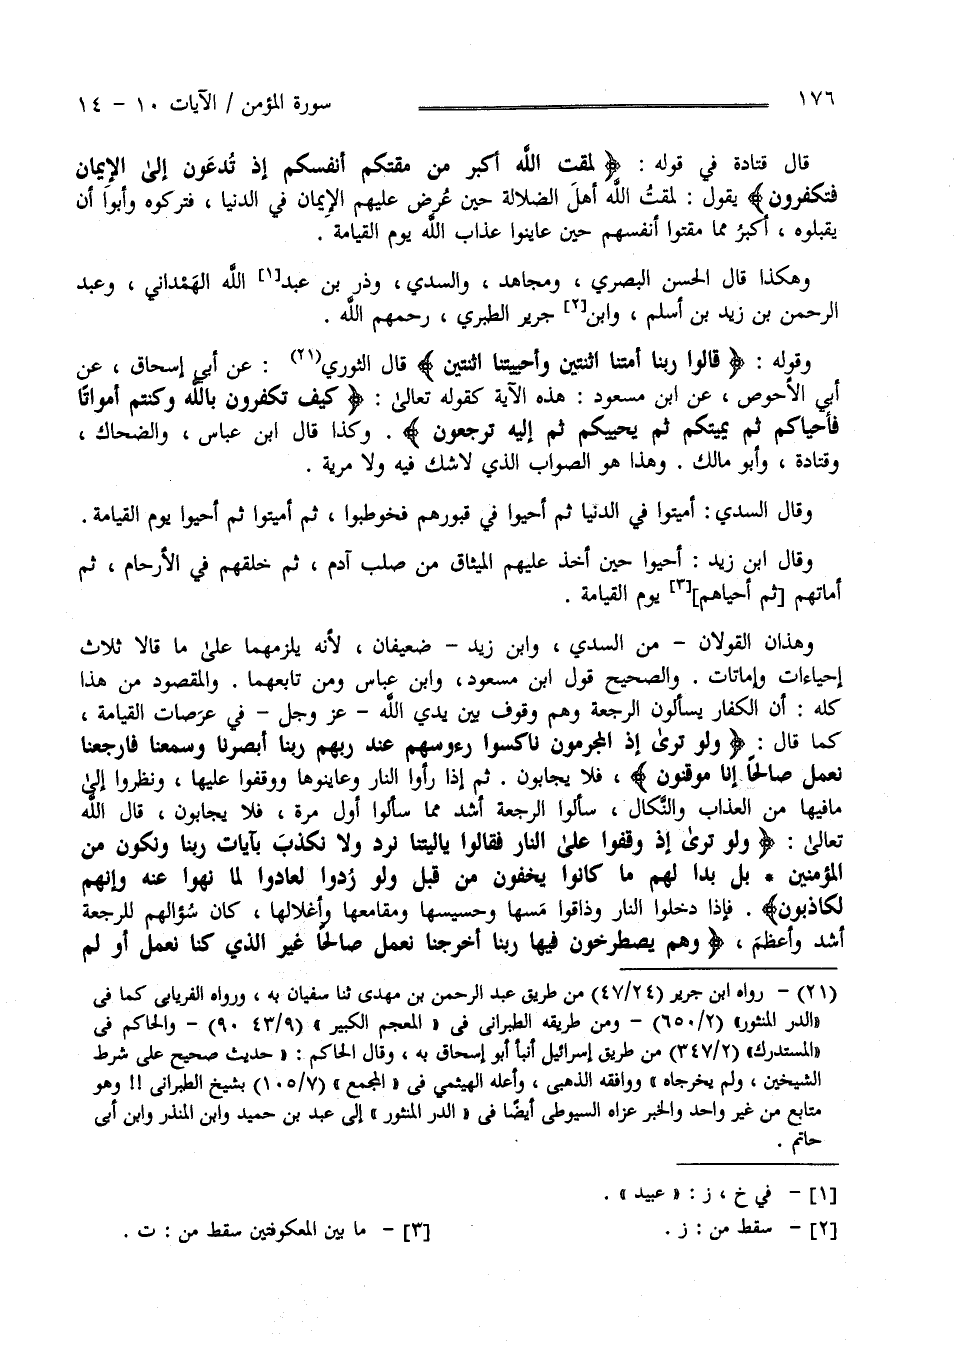 ١٧٦ سورة المؤمن / الآيات ١٠ – ١٤
قال قتادة في قوله : ﴿ لمقت اللَّه أكبر من مقتكم أنفسكم إذ تُدعَون إلىٰ الإيمان
فتكفرون﴾ يقول : لمقتُ اللَّه أهلَ الضلالة حين عُرض عليهم الإيمان في الدنيا ، فتركوه وأبوا أن
يقبلوه ، أكبرُ مما مقتوا أنفسهم حين عاينوا عذاب اللَّه يوم القيامة .
وهكذا قال الحسن البصري ، ومجاهد ، والسدي ، وذر بن عبد[١] اللَّه الهَمْداني ، وعبد
الرحمن بن زيد بن أسلم ، وابن[٢] جرير الطبري ، رحمهم اللَّه .
وقوله : ﴿ قالوا ربنا أمتنا اثنتين وأحييتنا اثنتين ﴾ قال الثوري(٢١) : عن أبي إسحاق ، عن
أبي الأحوص ، عن ابن مسعود : هذه الآية كقوله تعالىٰ : ﴿ كيف تكفرون باللَّه وكنتم أمواتًا
فأحياكم ثم يميتكم ثم يحييكم ثم إليه ترجعون ﴾ . وكذا قال ابن عباس ، والضحاك ،
وقتادة ، وأبو مالك . وهذا هو الصواب الذي لاشك فيه ولا مرية .
وقال السدي : أميتوا في الدنيا ثم أحيوا في قبورهم فخوطبوا ، ثم أميتوا ثم أحيوا يوم القيامة .
وقال ابن زيد : أحيوا حين أخذ عليهم الميثاق من صلب آدم ، ثم خلقهم في الأرحام ، ثم
أماتهم [ثم أحياهم][٣] يوم القيامة .
وهذان القولان – من السدي ، وابن زيد – ضعيفان ، لأنه يلزمهما علىٰ ما قالا ثلاث
إحياءات وإماتات . والصحيح قول ابن مسعود ، وابن عباس ومن تابعهما . والمقصود من هذا
كله : أن الكفار يسألون الرجعة وهم وقوف بين يدي اللَّه – عز وجل – في عرَصات القيامة ،
كما قال : ﴿ ولو ترىٰ إذ المجرمون ناكسوا رءوسهم عند ربهم ربنا أبصرنا وسمعنا فارجعنا
نعمل صالحًا إنا موقنون ﴾ ، فلا يجابون . ثم إذا رأوا النار وعاينوها ووقفوا عليها ، ونظروا إلىٰ
مافيها من العذاب والنَّكال ، سألوا الرجعة أشد مما سألوا أول مرة ، فلا يجابون ، قال اللَّه
تعالىٰ : ﴿ ولو ترىٰ إذ وقفوا علىٰ النار فقالوا ياليتنا نرد ولا نكذبَ بآيات ربنا ونكون من
المؤمنين * بل بدا لهم ما كانوا يخفون من قبل ولو رُدوا لعادوا لما نهوا عنه وإنهم
لكاذبون﴾ . فإذا دخلوا النار وذاقوا مَسها وحسيسها ومقامعها وأغلالها ، كان سُؤالهم للرجعة
أشد وأعظمَ ، ﴿ وهم يصطرخون فيها ربنا أخرجنا نعمل صالحًا غير الذي كنا نعمل أو لم
(٢١) – رواه ابن جرير (٤٧/٢٤) من طريق عبد الرحمن بن مهدى ثنا سفيان به ، ورواه الفريابى كما فى
«الدر المنثور» (٦٥٠/٢) – ومن طريقه الطبرانى فى « المعجم الكبير » (٤٣/٩ ٩٠) – والحاكم فى
«المستدرك» (٣٤٧/٢) من طريق إسرائيل أنبأ أبو إسحاق به ، وقال الحاكم : « حديث صحيح على شرط
الشيخين ، ولم يخرجاه » ووافقه الذهبى ، وأعله الهيثمي فى « المجمع » (١٠٥/٧) بشيخ الطبرانى !! وهو
متابع من غير واحد والخبر عزاه السيوطى أيضًا فى « الدر المنثور » إلى عبد بن حميد وابن المنذر وابن أبى
حاتم .
[١] – في خ ، ز : « عبيد » .
[٢] – سقط من : ز . [٣] – ما بين المعكوفتين سقط من : ت .